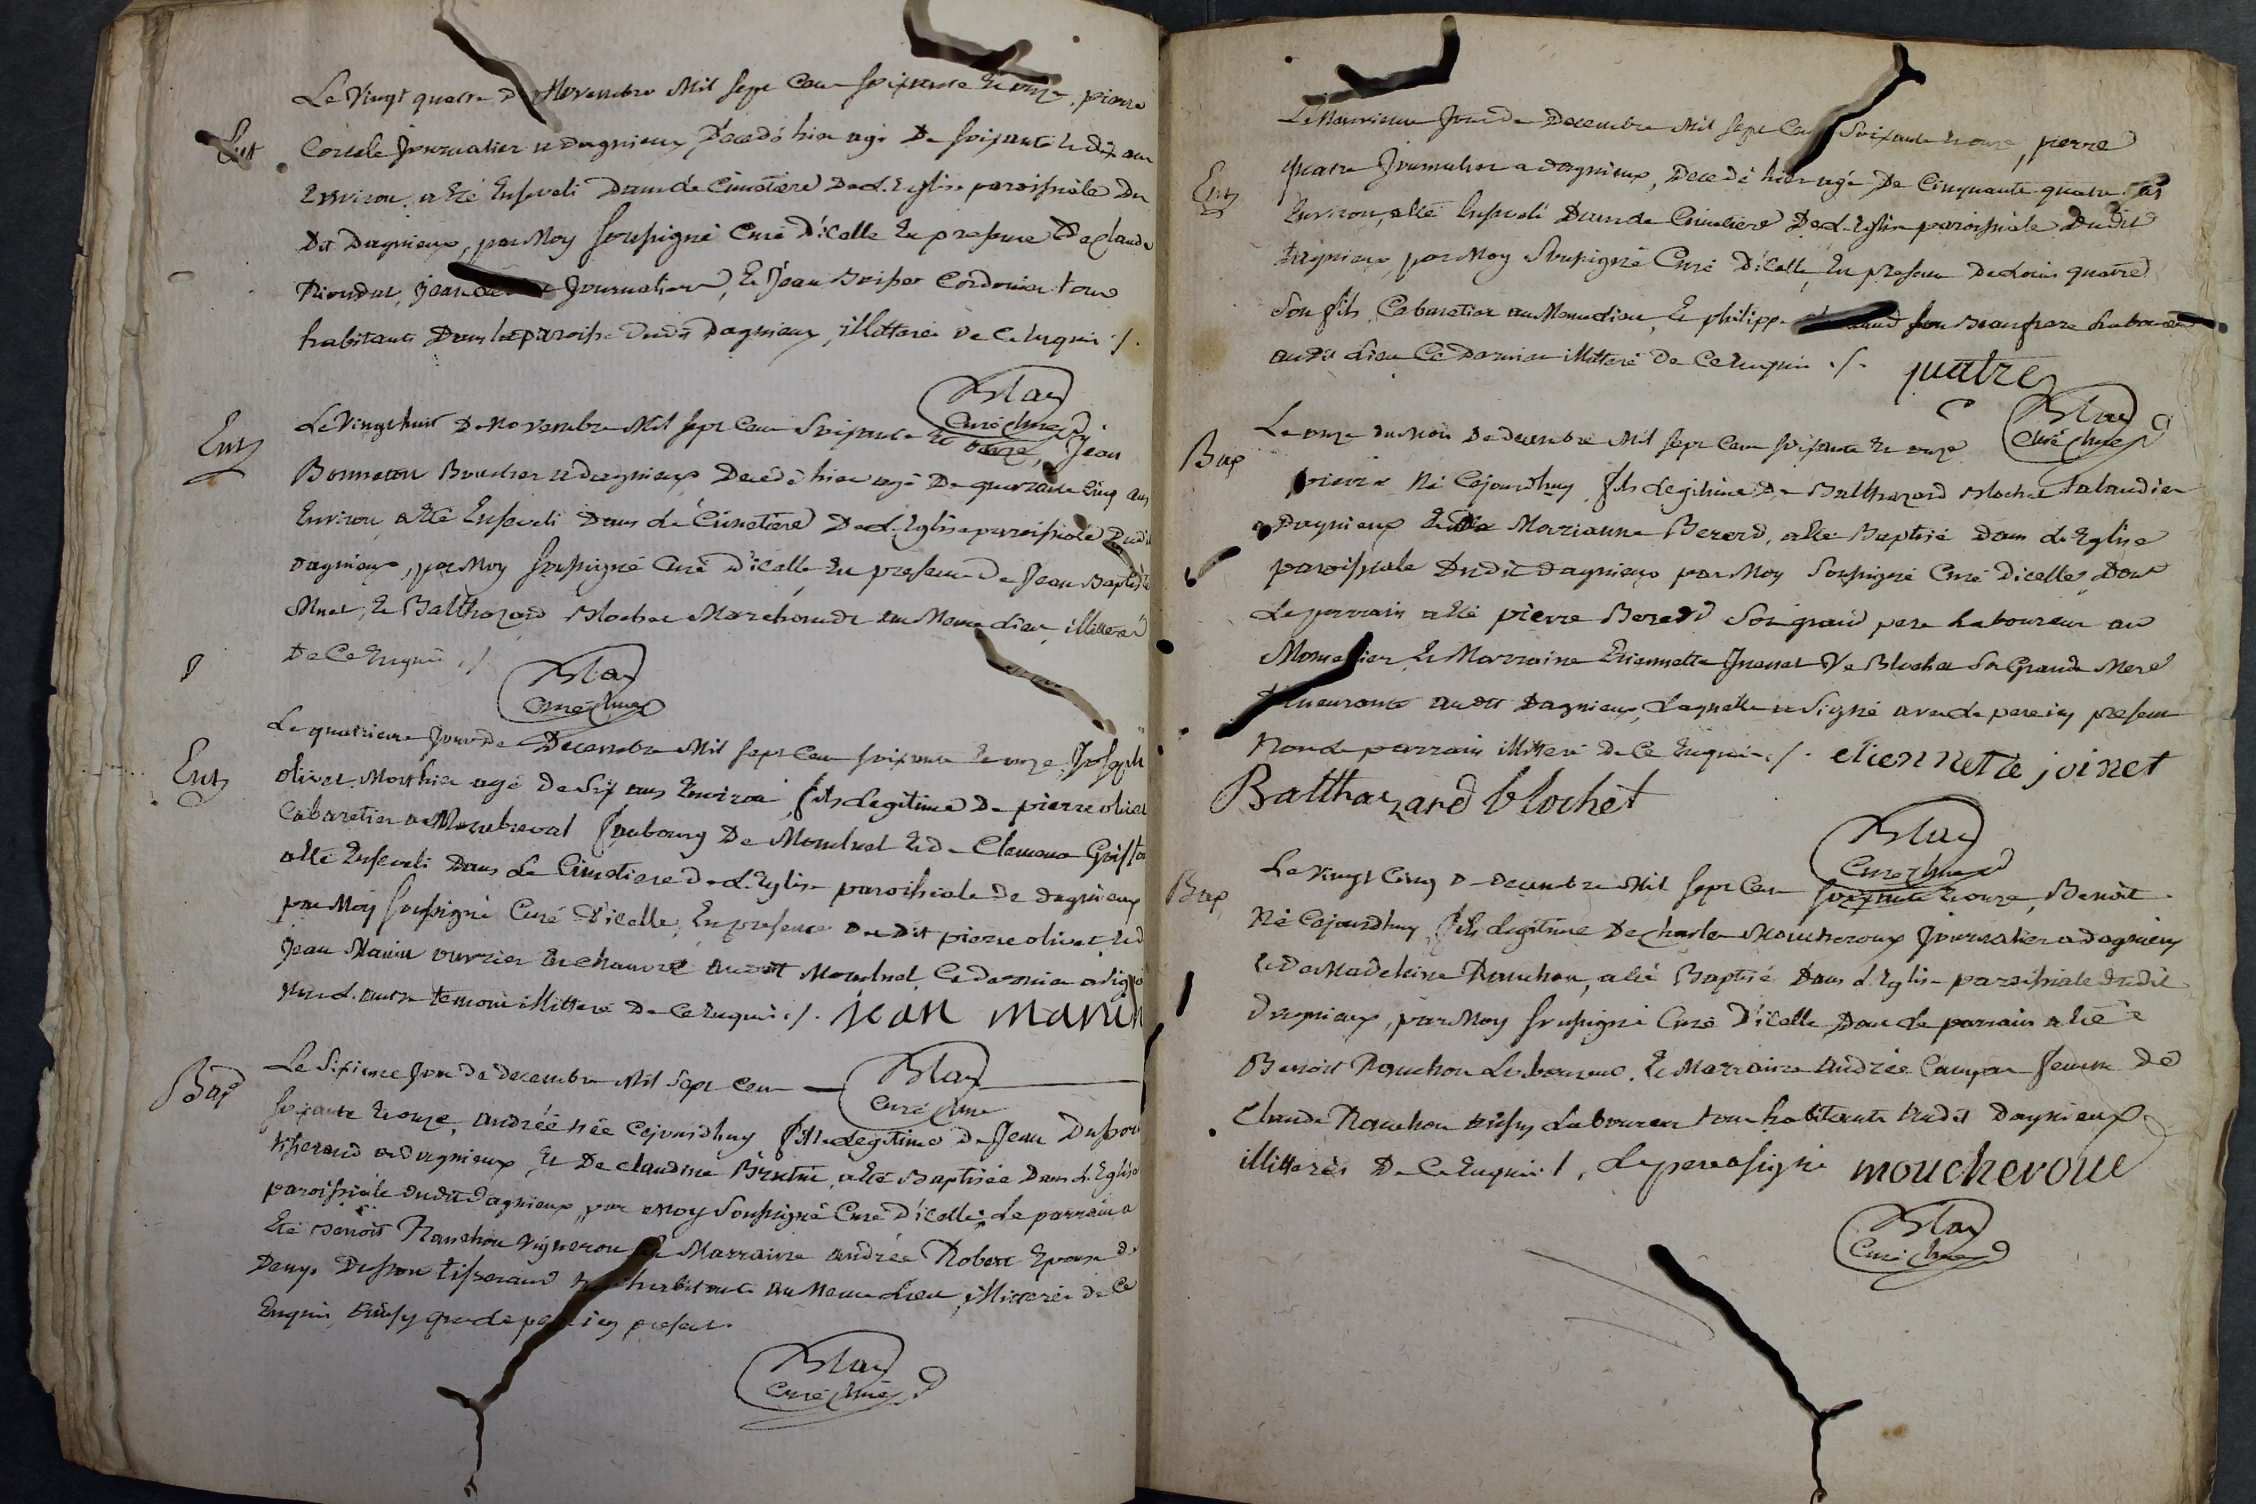 Le vingt quatre de Novembre Mil sept Cent soixante et onze, pierre
Ent
journalier a dagnieux Décedé hier agé De soixante et dix ans
Environ, a été Enseveli Dans le Cimetiere De L'Eglise paroissiale Du
Dit Dagnieux, par Moy soussigné Curé D'icelle En presence De claude
Riondat, jean journalier, Et Jean Cordonier tous
habitants Dans la paroisse dudit Dagnieux, illitterés De Ce Enquis ./.
Blay
Curé
Ent
Le vingt huit De novembre Mil sept Cent Soixante Et onze, Jean
Bonneton Boucher a dagnieux Decedé hier agé De quarante Cinq ans
Environ, a été Enseveli Dans le Cimetiere De L'Eglise paroissiale Dudit
dagnieux, par Moy soussigné Curé D'icelle En presence De Jean Baptiste
Et Balthazard Blochet Marchands au Meme Lieu illitterés
De Ce Enquis ./.
Blay
Curé
Ent
Le quatrieme jour De Decembre Mil sept Cent soixante Et onze, Joseph
olivet agé De Six ans Environ fils Legitime De pierre olivet
Cabaretier a faubourg De Monluel Et De Clemence
a été Enseveli Dans Le Cimetiere De L'Eglise paroissiale De dagnieux
par Moy soussigné Curé D'icelle, En presence Du Dit pierre olivet Et De
Jean Marin ouvrier En chanvre audit Monluel, Ce dernier a signé
L'autre temoin illitteré De Ce Enquis ./. jean marin
Bap
Le Sixieme jour De decembre Mil Sept Cent
Blay
Curé
soixante Et onze, andrée née Cejourdhuy fille Legitime De Jean
tisserand a dagnieux, Et De claudine a été Baptisée Dans L'Eglise
paroissiale dudit dagnieux, par Moy Soussigné Curé D'icelle; Le parrain a
Eté Benoit Ranchon vigneron Marraine andrée Robert Epouse de
Denys tisserand habitants au Meme Lieu, illitterés de Ce
Enquis, ainsy que Le present.
Blay
Curé
Le jour De Decembre Mil sept Cent Soixante Et onze, pierre
Ent
quatre journalier a dagnieux, Decedé hier agé De Cinquante quatre ans
Environ, a été Enseveli Dans Le Cimetiere De L'Eglise paroissiale Dudit
Dagnieux, par Moy Soussigné Curé D'icelle, En presence De Louis quatre
Son fils Cabaretier au Meme Lieu, Et philippe son Beaufrere
audit Lieu Ce Dernier illitteré De Ce Enquis ./. quatre
Blay
Curé
Bap
Le onze du Mois De decembre Mil sept Cent soixante Et onze
pierre Né Cejourdhuy fils Legitime De Balthazard Blochet Taland​ier
a Dagnieux Et De Marianne Berard, a été Baptisé Dans L'Eglise
paroissiale Dudit dagnieux par Moy Soussigné Curé D'icelle, Dont
Le parrain a été pierre Berard Son grand pere Laboureur au
Et Marraine Etiennette Ve Blochet Sa Grande Mere
audit Dagnieux, Laquelle a Signé avec Le pere present
Non Le parrain illitteré De Ce Enquis ./. etiennette joinet
Balthazard blochet
Blay
Curé
Bap
Le vingt Cinq De decembre Mil sept Cent soixante Et onze, Benoit
Né Cejourdhuy fils Legitime De charles Moucheroux journalier a dagnieux
Et De Madeleine Ranchon, a été Baptisé Dans L'Eglise paroissiale dudit
dagnieux, par Moy soussigné Curé D'icelle, Dont Le parrain a été
Benoit Ranchon Laboureur, Et Marraine andrée femme De
Claude Ranchon aussy Laboureur tous habitants dudit Dagnieux
illitterés De Ce Enquis ./. Le pere a signé moucheroue
Blay
Curé